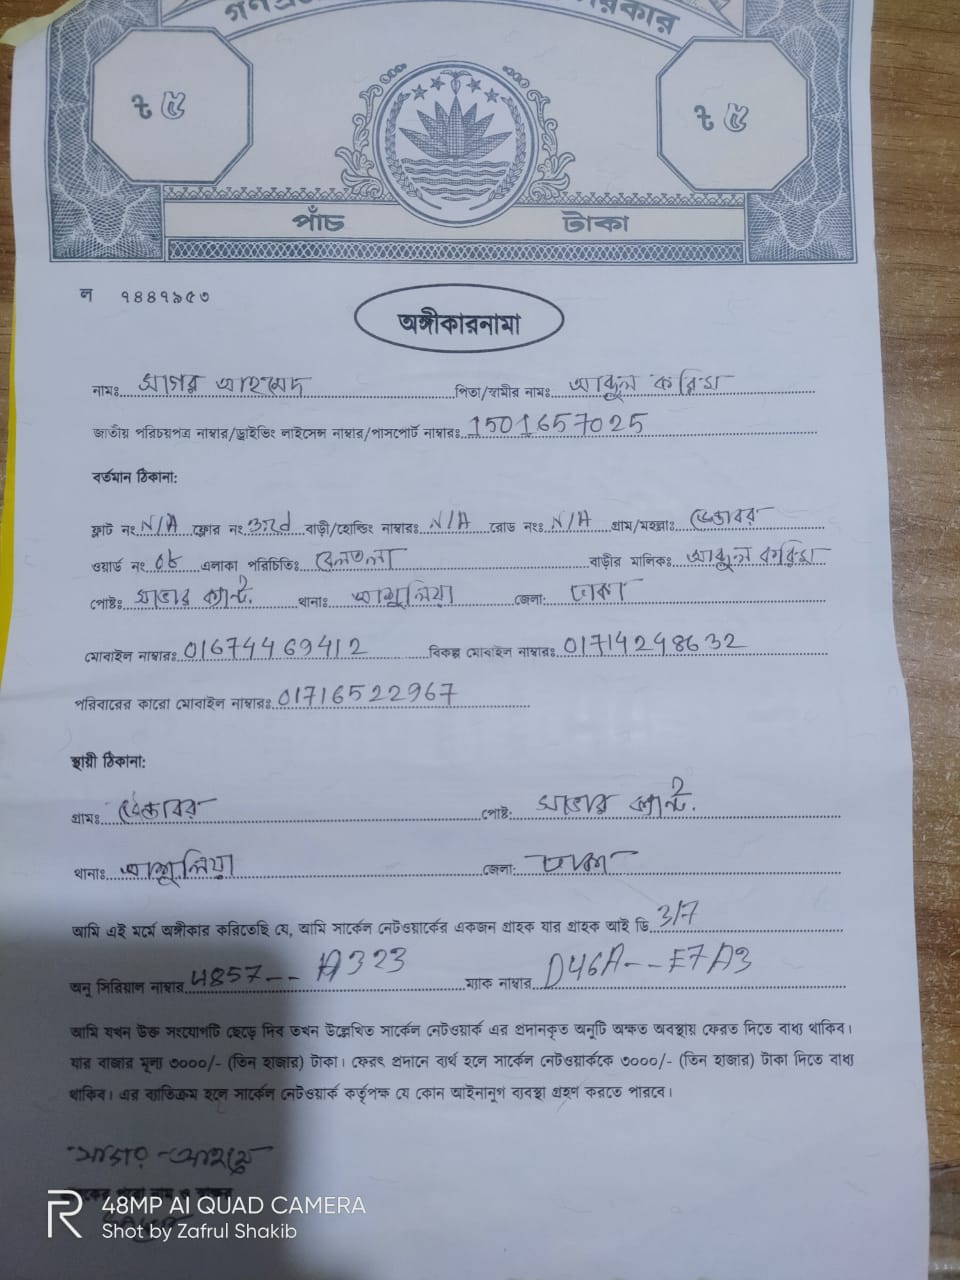 গণপ্র
রকার
৳ ৫ ৳ ৫
পাঁচ টাকা
ল ৭৪৪৭৯৫৩
অঙ্গীকারনামা
নামঃ সাগর আহমেদ পিতা/স্বামীর নামঃ আব্দুল করিম
জাতীয় পরিচয়পত্র নাম্বার/ড্রাইভিং লাইসেন্স নাম্বার/পাসপোর্ট নাম্বারঃ 1501657025
বর্তমান ঠিকানা:
ফ্লাট নং N/A ফ্লোর নং 3rd বাড়ী/হোল্ডিং নাম্বারঃ N/A রোড নংঃ N/A গ্রাম/মহল্লাঃ ডেন্ডাবর
ওয়ার্ড নং 08 এলাকা পরিচিতিঃ বেলতলা বাড়ীর মালিকঃ আব্দুল করিম
পোষ্টঃ সাভার ক্যান্ট. থানাঃ আশুলিয়া জেলা: ঢাকা
মোবাইল নাম্বারঃ 01674469412 বিকল্প মোবাইল নাম্বারঃ 01714248632
পরিবারের কারো মোবাইল নাম্বারঃ 01716522967
স্থায়ী ঠিকানা:
গ্রামঃ ডেন্ডাবর পোষ্ট: সাভার ক্যান্ট.
থানাঃ আশুলিয়া জেলা: ঢাকা
আমি এই মর্মে অঙ্গীকার করিতেছি যে, আমি সার্কেল নেটওয়ার্কের একজন গ্রাহক যার গ্রাহক আই ডি 317
অনু সিরিয়াল নাম্বার 4857-- A323 ম্যাক নাম্বার D46A--E7A3
আমি যখন উক্ত সংযোগটি ছেড়ে দিব তখন উল্লেখিত সার্কেল নেটওয়ার্ক এর প্রদানকৃত অনুটি অক্ষত অবস্থায় ফেরত দিতে বাধ্য থাকিব।
যার বাজার মূল্য ৩০০০/- (তিন হাজার) টাকা। ফেরৎ প্রদানে ব্যর্থ হলে সার্কেল নেটওয়ার্ককে ৩০০০/- (তিন হাজার) টাকা দিতে বাধ্য
থাকিব। এর ব্যতিক্রম হলে সার্কেল নেটওয়ার্ক কর্তৃপক্ষ যে কোন আইনানুগ ব্যবস্থা গ্রহণ করতে পারবে।
সাগর আহমেদ
48MP AI QUAD CAMERA
Shot by Zafrul Shakib